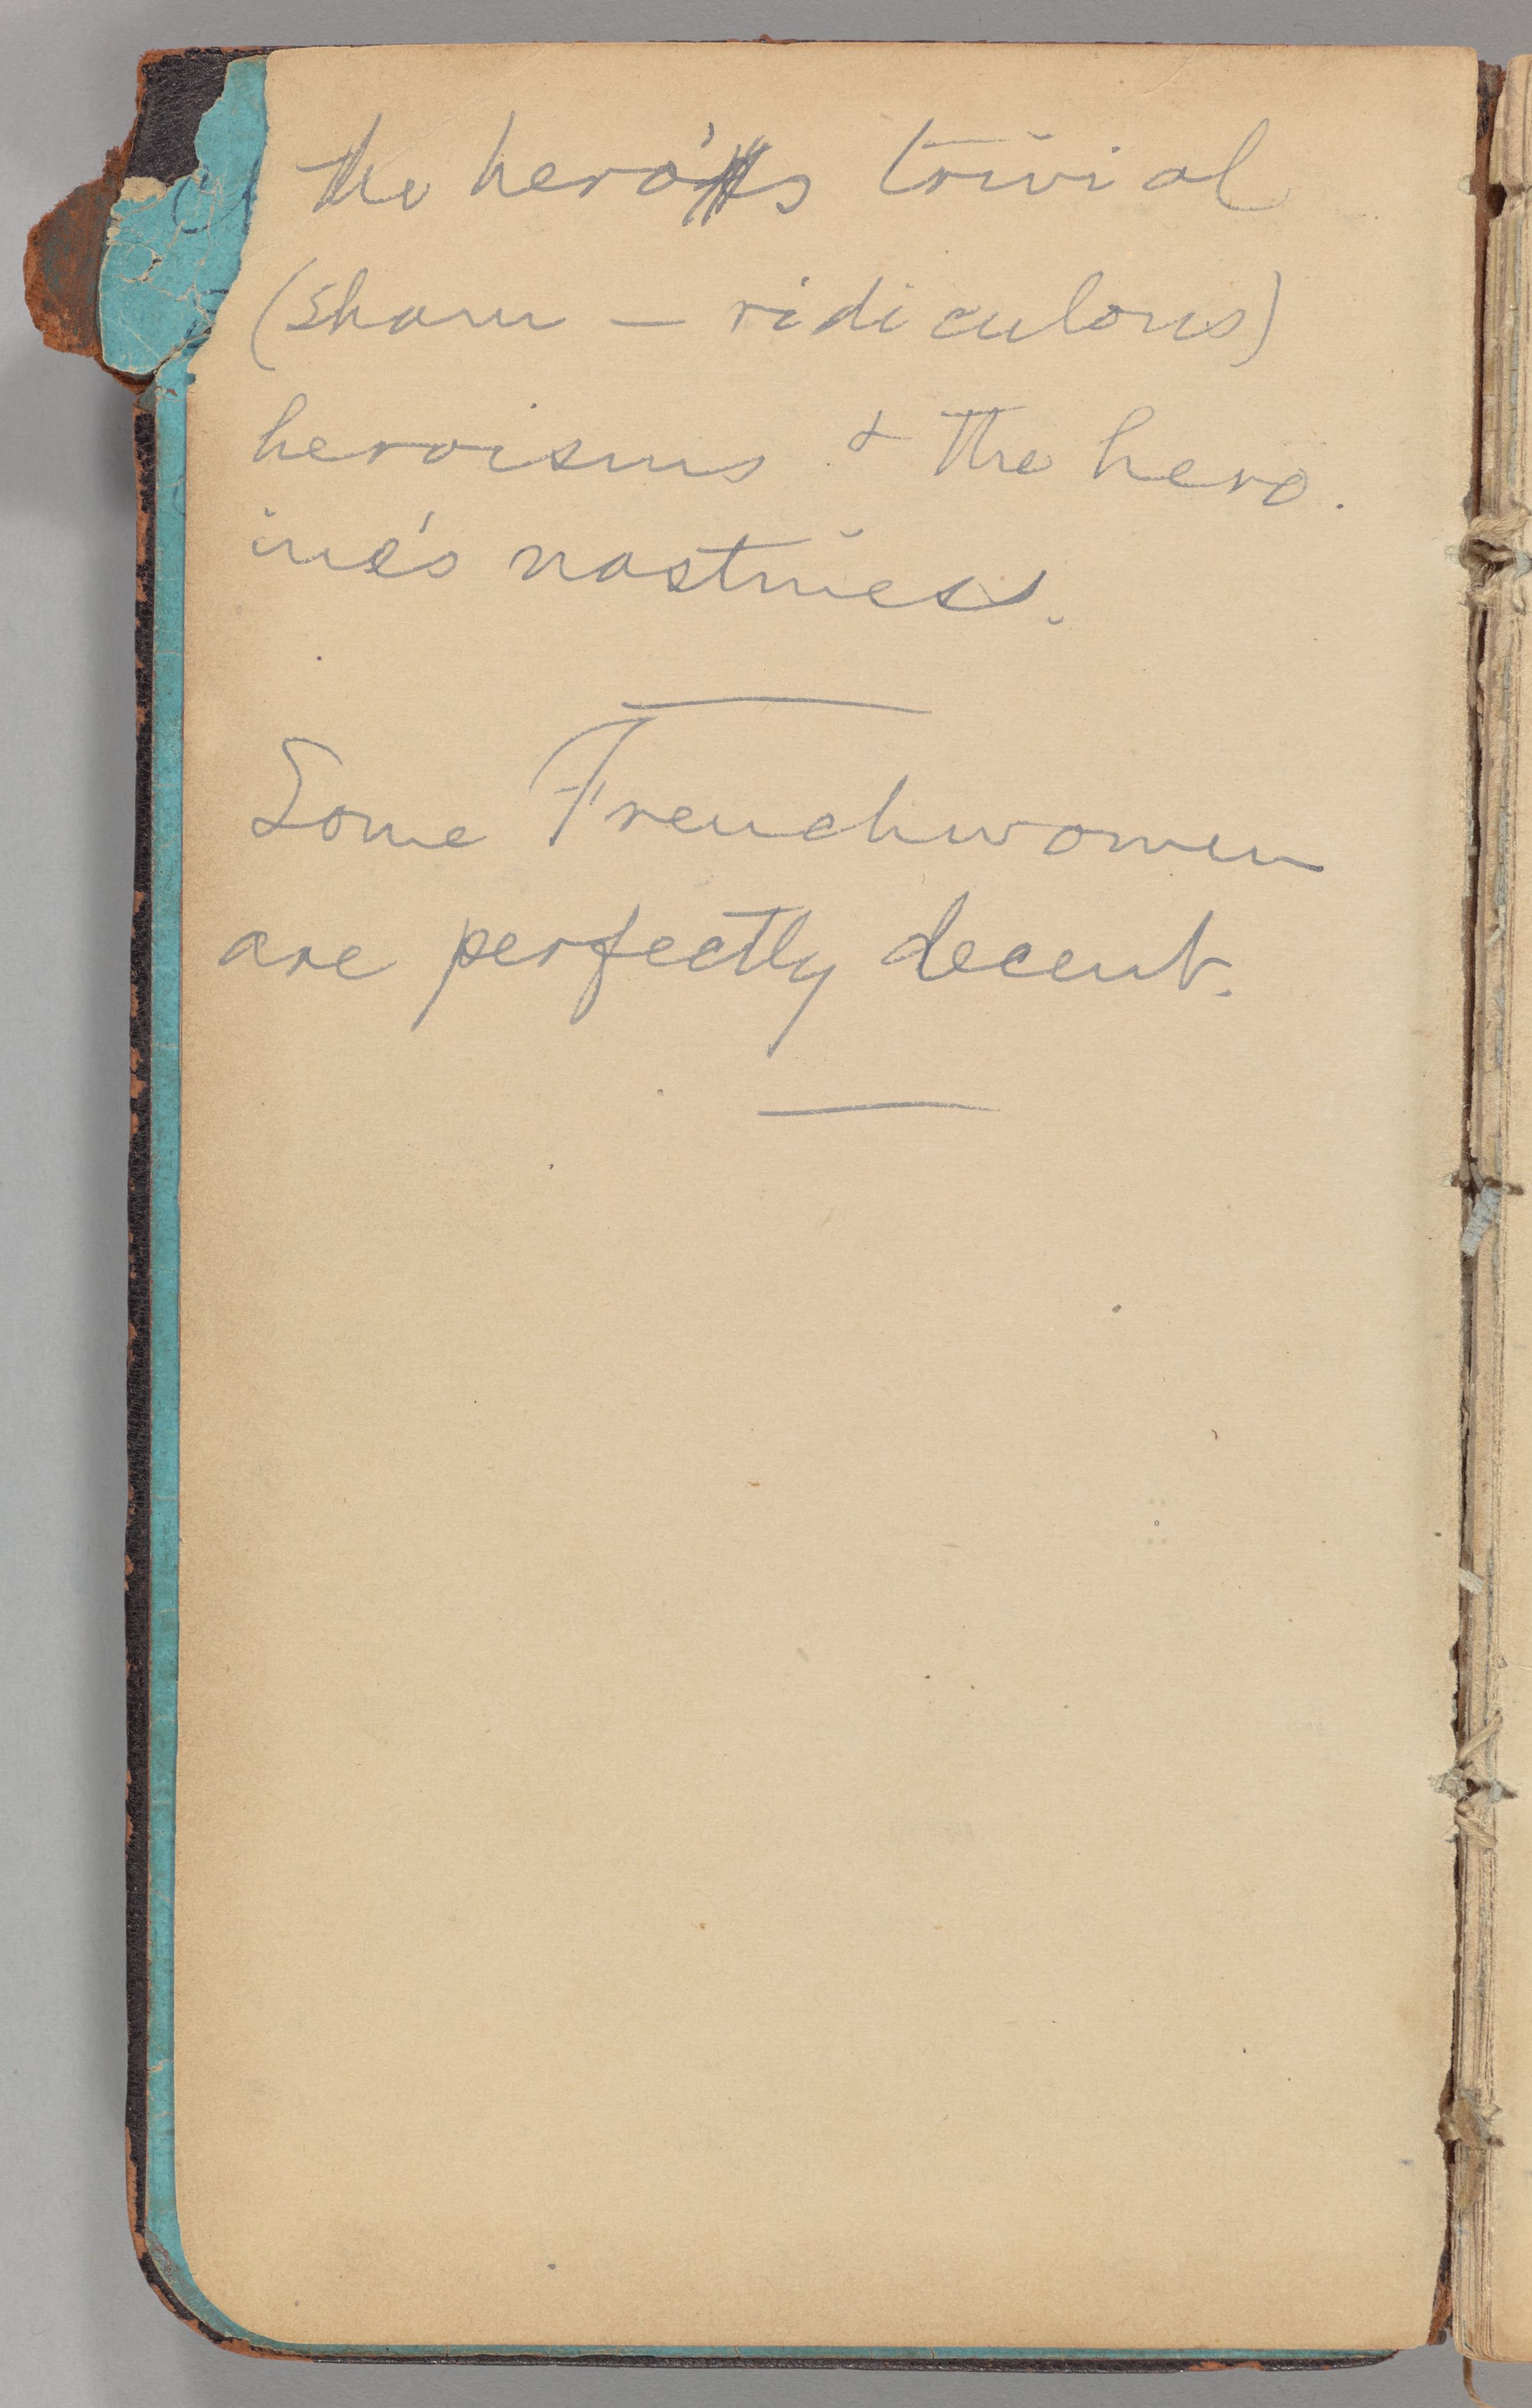 the hero's trivial
(sham — ridiculous)
heroisms & the hero.
ine's nastiness.
Some Frenchwomen
are perfectly decent.